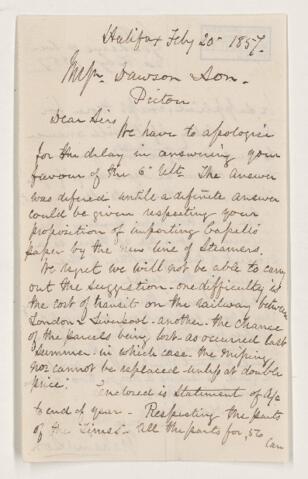 Halifax Feby 20th 1857.
Messrs Dawson & Son.
Pictou
Dear Sirs
We have to apologise
for the delay in answering your
favour of the 6th Ult. The answer
was defered until a definite answer
could be given respecting your
proposition of importing
paper by the new line of Steamers.
We regret we will not be able to carry
out the suggestion - one difficulty is
the cost of transit on the railway between
London & Liverpool - another - the chance
of the parcels being lost as occurred last
Summer. in which case the missing
nos cannot be replaced unless at double
price.
Enclosed is Statement of A/c
to end of year - Respecting the parts
of the "Times" - all the parts for, 56
can